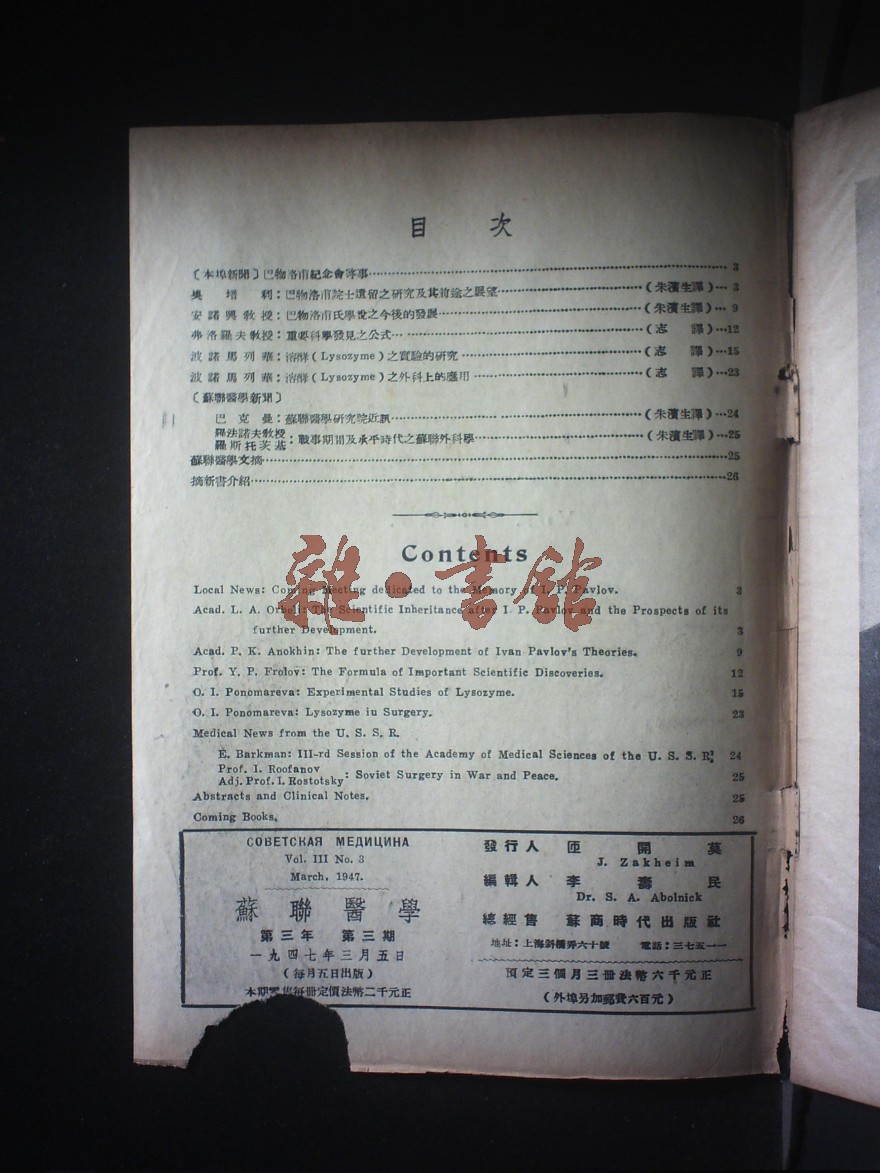 目 次
〔本埠新聞〕巴物洛甫紀念會啓事 3
奧培利：巴物洛甫院士遺留之研究及其前途之展望 （朱濱生譯） 3
安諾興教授：巴物洛甫氏學說之今後的發展 （朱濱生譯） 9
弗洛羅夫教授：重要科學發見之公式 （志譯） 12
波諾馬列華：溶酵（Lysozyme）之實驗的研究 （志譯） 15
波諾馬列華：溶酵（Lysozyme）之外科上的應用 （志譯） 23
〔蘇聯醫學新聞〕
巴克曼：蘇聯醫學研究院近訊 （朱濱生譯） 24
羅法諾夫教授
羅斯托茨基：戰事期間及承平時代之蘇聯外科學 （朱濱生譯） 25
蘇聯醫學文摘 25
摘新書介紹 26
Contents
雜·書館
Local News: Coming Meeting dedicated to the Memory of I. P. Pavlov. 3
Acad. L. A. Orbeli: The Scientific Inheritance after I. P. Pavlov and the Prospects of its
further Development. 3
Acad. P. K. Anokhin: The further Development of Ivan Pavlov's Theories. 9
Prof. Y. P. Frolov: The Formula of Important Scientific Discoveries. 12
O. I. Ponomareva: Experimental Studies of Lysozyme. 15
O. I. Ponomareva: Lysozyme iu Surgery. 23
Medical News from the U. S. S. R.
E. Barkman: III-rd Session of the Academy of Medical Sciences of the U. S. S. R. 24
Prof. I. Roofanov
Adj. Prof. I. Rostotsky: Soviet Surgery in War and Peace. 25
Abstracts and Clinical Notes. 25
Coming Books. 26
СОВЕТСКАЯ МЕДИЦИНА
Vol. III No. 3
March, 1947.
蘇聯醫學
第三年 第三期
一九四七年三月五日
（每月五日出版）
本期零售每冊定價法幣二千元正
發行人 匝開莫
J. Zakheim
編輯人 李濤民
Dr. S. A. Abolnick
總經售 蘇商時代出版社
地址：上海斜橋弄六十號 電話：三七五一一
預定三個月三冊法幣六千元正
（外埠另加郵費六百元）